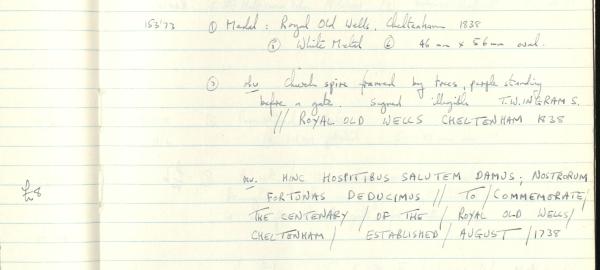 153'73 ① Medal : Royal Old Wells, Cheltenham 1838
⑤ White Metal ⑥ 46 mm x 56 mm oval.
② obv church spire framed by trees, people standing
before a gate. signed illegible T.W. INGRAM S.
// ROYAL OLD WELLS CHELTENHAM 1838
rev. HINC HOSPITIBUS SALUTEM DAMUS; NOSTRORUM
£8 FORTUNAS DEDUCIMUS // TO / COMMEMORATE /
THE CENTENARY / OF THE / ROYAL OLD WELLS /
CHELTENHAM / ESTABLISHED / AUGUST / 1738